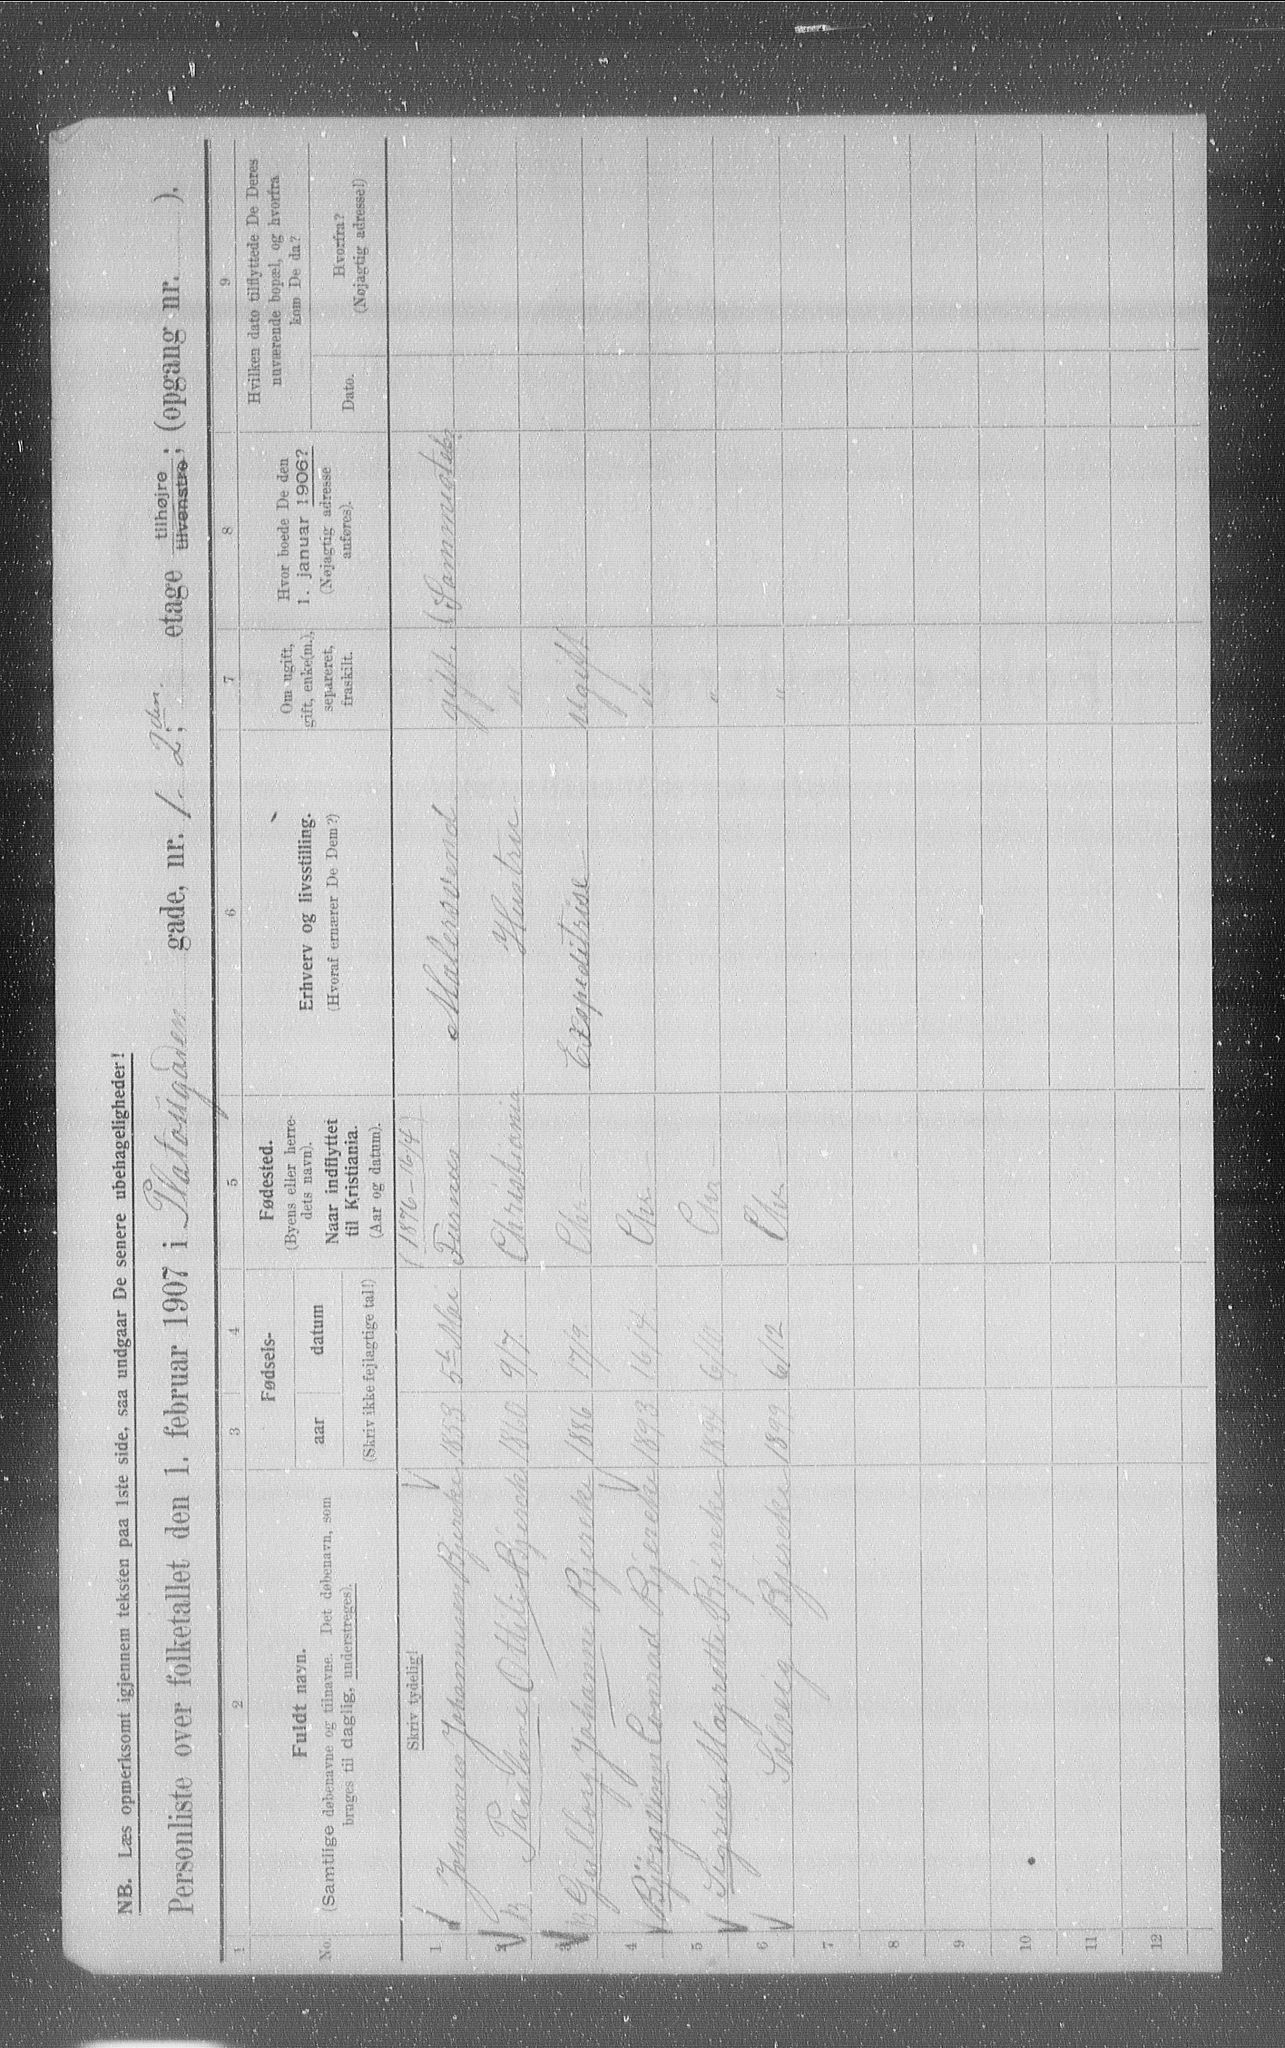 NB. Læs opmerksomt igjennem teksten paa 1ste side, saa undgaar De senere ubehageligheder!
Personliste over folketallet den 1. februar 1907 i Platousgaden gade, nr. 1. 2den, etage tilhøjre tilvenstre, (opgang nr. ).
1 2 3 4 5 6 7 8 9
No. Fuldt navn. (Samtlige døbenavne og tilnavne. Det døbenavn, som bruges til daglig, understreges).
Fødsels- aar datum
(Skriv ikke fejlagtige tal!)
Fødested. (Byens eller herredets navn). Naar indflyttet til Kristiania. (Aar og datum).
Erhverv og livsstilling. (Hvoraf ernærer De Dem?)
Om ugift, gift, enke(m.), separeret, fraskilt.
Hvor boede De den 1. januar 1906? (Nøjagtig adresse anføres).
Hvilken dato tilflyttede De Deres nuværende bopæl, og hvorfra kom De da?
Dato. Hvorfra? (Nøjagtig adresse!)
Skriv tydelig!
(1876-16/4)
1 Johannes Johannesen Bjereke 1853 5te Mai Furnæs Malersvend gift. Sammested
2 Pauline Othilie Bjereke 1860 9/7. Christiania Hustru "
3 Gudborg Johanne Bjereke 1886 17/9. Chr. Expeditrise ugift
4 Bjørgvinn Conrad Bjereke 1893 16/4. Chr. "
5 Sigrid Magrethe Bjereke 6/10 Chr "
6 Solveig Bjereke 1899 6/12 Chr. "
7
8
9
10
11
12